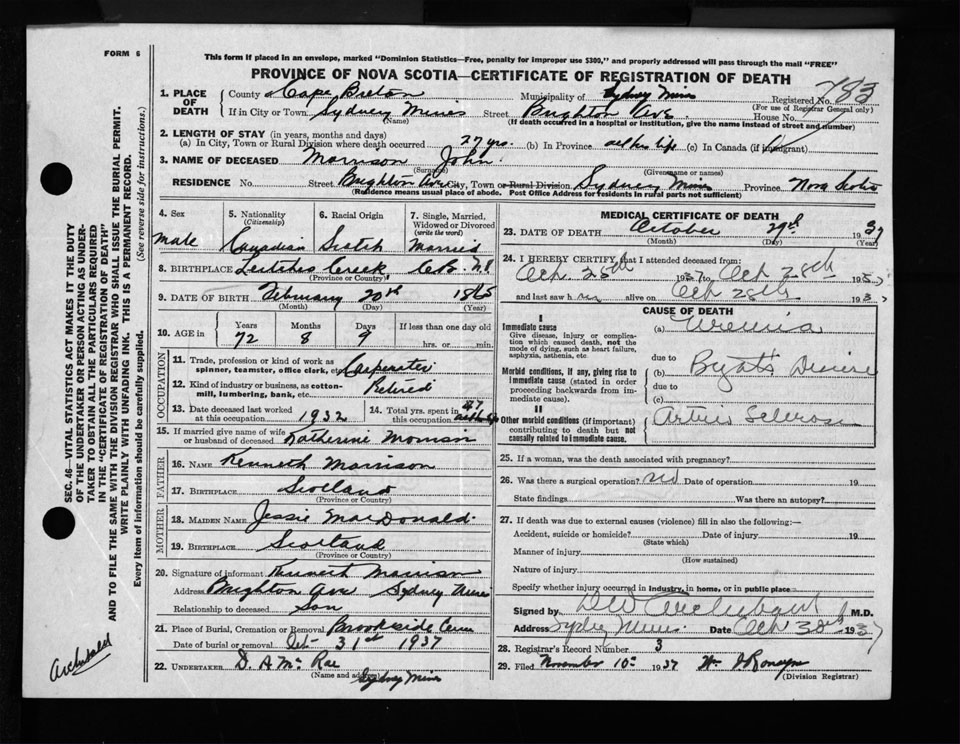 FORM 6
This form if placed in an envelope, marked "Dominion Statistics—Free, penalty for improper use $300," and properly addressed will pass through the mail "FREE"
PROVINCE OF NOVA SCOTIA—CERTIFICATE OF REGISTRATION OF DEATH
1. PLACE OF DEATH
County Cape Breton Municipality of Sydney Mines Registered No. 783
(For use of Registrar General only)
If in City or Town Sydney Mines Street Brighton Ave House No.
(Name) (If death occurred in a hospital or institution, give the name instead of street and number)
2. LENGTH OF STAY (in years, months and days)
(a) In City, Town or Rural Division where death occurred 27 yrs. (b) In Province all his life (c) In Canada (if immigrant)
3. NAME OF DECEASED Morrison John
(Surname) (Given name or names)
RESIDENCE No. Street Brighton Ave City, Town or Rural Division Sydney Mines Province Nova Scotia
(Residence means usual place of abode. Post Office Address for residents in rural parts not sufficient)
4. Sex
Male
5. Nationality
(Citizenship)
Canadian
6. Racial Origin
Scotch
7. Single, Married, Widowed or Divorced
(write the word)
Married
8. BIRTHPLACE Leitches Creek C.B. N.S.
(Province or Country)
9. DATE OF BIRTH February 20th 1865
(Month) (Day) (Year)
10. AGE in Years Months Days If less than one day old
72 8 9 hrs. or min.
OCCUPATION
11. Trade, profession or kind of work as spinner, teamster, office clerk, etc. Carpenter
12. Kind of industry or business, as cotton-mill, lumbering, bank, etc. Retired
13. Date deceased last worked at this occupation 1932
14. Total yrs. spent in 47
15. If married give name of wife or husband of deceased Katherine Morrison
FATHER
16. NAME Kenneth Morrison
17. BIRTHPLACE Scotland
(Province or Country)
MOTHER
18. MAIDEN NAME Jessie MacDonald
19. BIRTHPLACE Scotland
(Province or Country)
20. Signature of informant Kenneth Morrison
Address Brighton Ave Sydney Mines
Relationship to deceased Son
21. Place of Burial, Cremation or Removal Brookside Cem
Date of burial or removal Oct 31st 1937
22. UNDERTAKER D. A. McRae
(Name and address) Sydney Mines
MEDICAL CERTIFICATE OF DEATH
23. DATE OF DEATH October 29th 1937
(Month) (Day) (Year)
24. I HEREBY CERTIFY that I attended deceased from:
Oct 28th 1937 to Oct 28th 1937
and last saw h alive on Oct 28th 193
CAUSE OF DEATH
I
Immediate cause
Give disease, injury or complication which caused death, not the mode of dying, such as heart failure, asphyxia, asthenia, etc.
(a) Uremia
due to
Morbid conditions, if any, giving rise to immediate cause (stated in order proceeding backwards from immediate cause).
(b) Bryats Disease
due to
(c)
II
Other morbid conditions (if important) contributing to death but not causally related to immediate cause.
Arterio Sclerosis
25. If a woman, was the death associated with pregnancy?
26. Was there a surgical operation? no Date of operation 19
State findings Was there an autopsy?
27. If death was due to external causes (violence) fill in also the following:—
Accident, suicide or homicide? Date of injury 19
(State which)
Manner of injury
(How sustained)
Nature of injury
Specify whether injury occurred in industry, in home, or in public place
Signed by D W Archibald M.D.
Address Sydney Mines Date Oct 30th 1937
28. Registrar's Record Number 3
29. Filed November 10th 1937
(Division Registrar)
SEC. 46—VITAL STATISTICS ACT MAKES IT THE DUTY OF THE UNDERTAKER OR PERSON ACTING AS UNDERTAKER TO OBTAIN ALL THE PARTICULARS REQUIRED IN THE "CERTIFICATE OF REGISTRATION OF DEATH" AND TO FILE THE SAME WITH THE DIVISION REGISTRAR WHO SHALL ISSUE THE BURIAL PERMIT.
WRITE PLAINLY WITH UNFADING INK. THIS IS A PERMANENT RECORD.
Every item of information should be carefully supplied. (See reverse side for instructions.)
Archibald